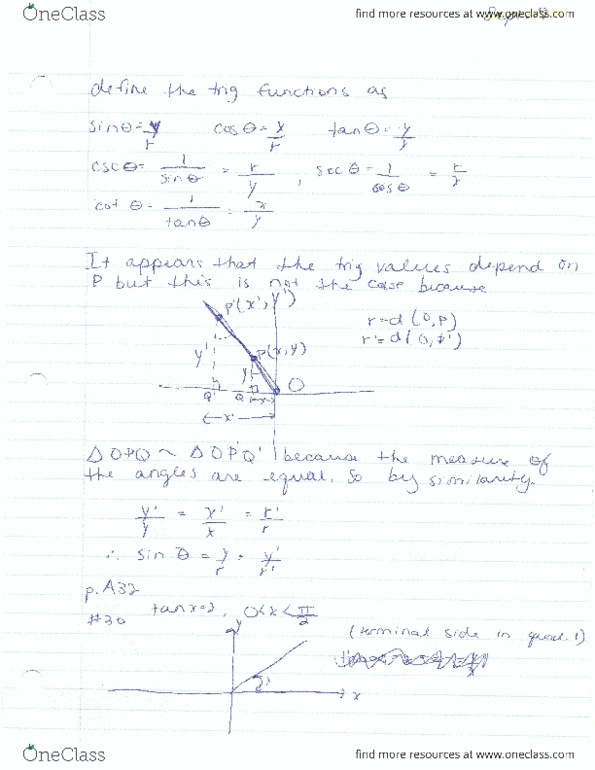 OneClass
find more resources at www.oneclass.com
define the trig functions as
sinθ = y/r cosθ = x/r tanθ = y/x
cscθ = 1/sinθ = r/y , secθ = 1/cosθ = r/x
cotθ = 1/tanθ = x/y
It appears that the trig values depend on
P but this is not the case because
P'(x', y')
r = d(O, P)
r' = d(O, P')
P(x, y)
y'
y
Q' Q x O
x'
Δ OPQ ~ Δ OP'Q' because the measure of
the angles are equal. So by similarity.
y'/y = x'/x = r'/r
∴ sin θ = y/r = y'/r'
p. A32
#30 tan x = 2, 0 < x < π/2
y
(terminal side in quad. 1)
x
OneClass
find more resources at www.oneclass.com